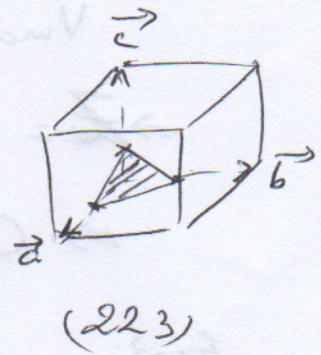 c
b
a
(223)